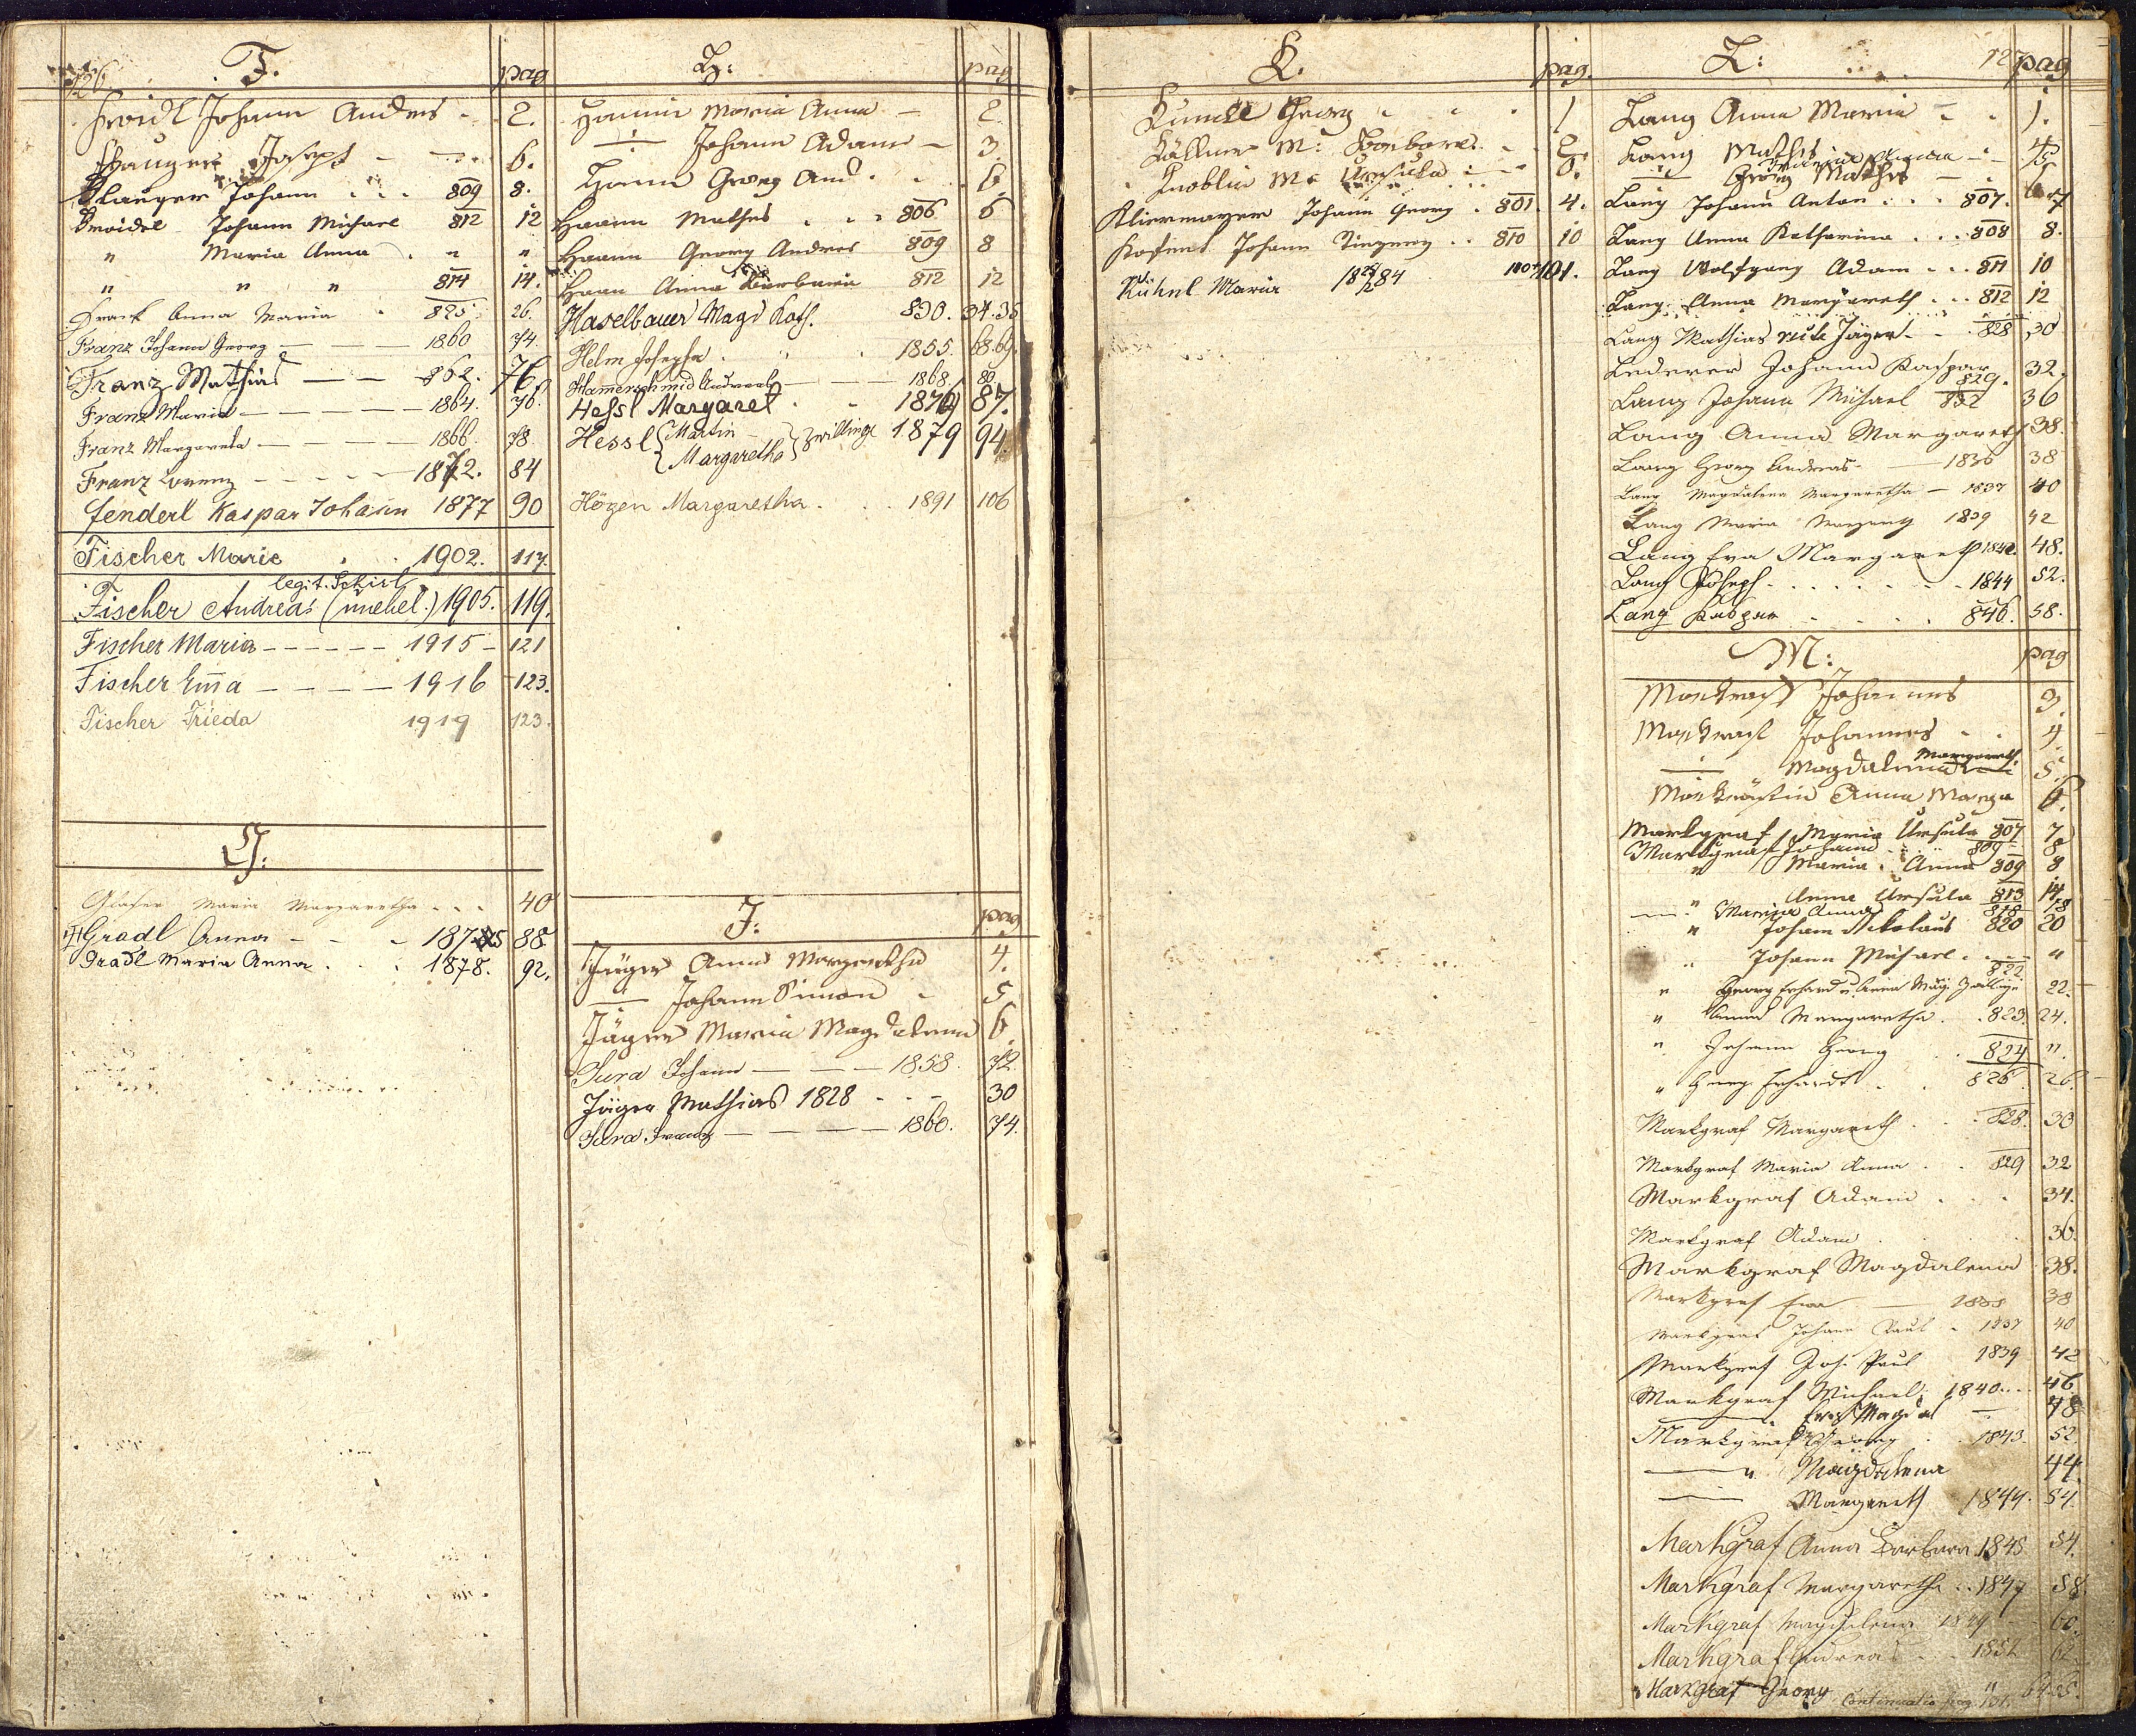 126.
F. pag
Johann Andres 2.
Joseph 6.
Johann 809 8.
Johann Michael 812 12
" Maria Anna " "
" " " 814 14.
Anna Maria 825. 26.
Franz Johann Georg 1860 74.
Franz Mathias 862. 76.
Franz Maria 1864. 76.
Franz Margareta 1866. 78.
Franz Lorenz 1872. 84
Fenderl Kaspar Johann 1877 90
Fischer Marie 1902. 117.
legit. Schirl
Fischer Andreas (unehel.) 1905. 119.
Fischer Maria 1915 121
Fischer Em̄a 1916 123.
Fischer Frieda 1919 123.
G:
Glaser Maria Margaretha 40
Gradl Anna 1875 88.
Gradl Maria Anna 1878. 92.
H: pag
Maria Anna 2.
Johann Adam 3
Georg And. 6.
Haann Mathes 806 6
Haann Georg Andres 809 8
Haan Anna Barbara 812 12
Haselbauer Magd Kath. 830. 34.35
Helm Josepha 1855. 68.69.
Hammerschmid Andreas 1868. 80.
Hessl Margaret 1876 87.
Hessl { Martin
Margaretha } Zwillinge 1879 94.
Högen Margaretha 1891 106
J: pag
Jäger Anna Margaretha 4.
Johann Simon 5
Jäger Maria Magdalena 6.
Jura Johann 1858. 72.
Jäger Mathias 1828 30
Jura Franz 1860. 74.
K. pag.
Georg 1
M: Barbara 2.
Knoblin M: Ursula 6.
Kliermayer Johann Georg 801. 4.
Johann 810 10
Kühnl Maria 1884 101.
L: 127 pag
Lang Anna Maria 1.
Lang Mathes 4.
Maria Anna 5
Georg Mathes 6
Lang Johann Anton 807. 7
Lang Anna Katharina 808 8.
Lang Wolfgang Adam 811 10
Lang Anna Margareth 812 12
Lang Mathias vide Jäger 828 30
Lederer Johann Kaspar 829. 32.
Lang Johann Michael 832 36
Lang Anna Margareth 38.
Lang Georg Andreas 1836 38
Lang Magdalena Margaretha 1837 40
Lang Maria Margareth 1839 42
Lang Eva Margareth 1842. 48.
Lang Joseph 1844 52.
Lang Kaspar 846. 58.
M: pag
Markgraf Johannes 3.
Markgraf Johannes 4.
Magdalena Margareth. 5.
Anna Marga 6.
Markgraf Maria Ursula 807 7
Markgraf Johann 809 8
" Maria Anna 809 8
" Anna Ursula 813 14
Maria Anna 818 18
" Johann Nikolaus 820 20
" Johann Michael "
822
" Georg Erhard u. Anna Mag. Zwillinge 22.
" Anna Margaretha 823. 24.
" Johann Georg 824 ".
" Georg Erhardt 826 26.
Markgraf Margareth 828. 30
Markgraf Maria Anna 829 32
Markgraf Adam 34.
Markgraf Adam 36.
Markgraf Magdalena 38.
Markgraf Eva 38
Markgraf Johann Paul 1837 40
Markgraf Joh. Paul 1839 42
Markgraf Michael 1840 46
Eva Magdal 48
Markgraf Georg 1843. 52.
" Magdalena 44.
Margareth 1844. 54.
Markgraf Anna Barbara 1845 54.
Markgraf Margaretha 1847 58.
Markgraf Magdalena 1849 60.
Markgraf Andreas 1852 62.
Markgraf Georg " 64.
Continuatio pag. 131.